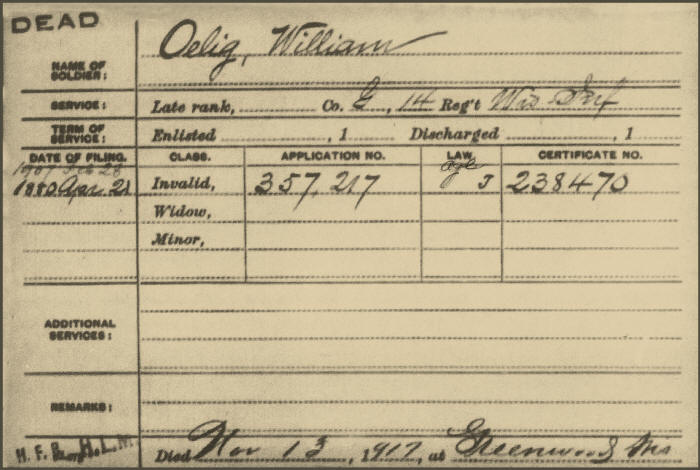 DEAD
NAME OF SOLDIER: Oelig, William
SERVICE: Late rank, Co. G, 14 Reg't Wis Inf
TERM OF SERVICE: Enlisted , 1 Discharged , 1
DATE OF FILING. CLASS. APPLICATION NO. LAW. CERTIFICATE NO.
1907 Feb 28 age
1880 Apr 21 Invalid, 357,217 J 238470
Widow,
Minor,
ADDITIONAL SERVICES:
REMARKS:
H. F. H. L. M.
Died Nov 13, 1917, at Greenwood